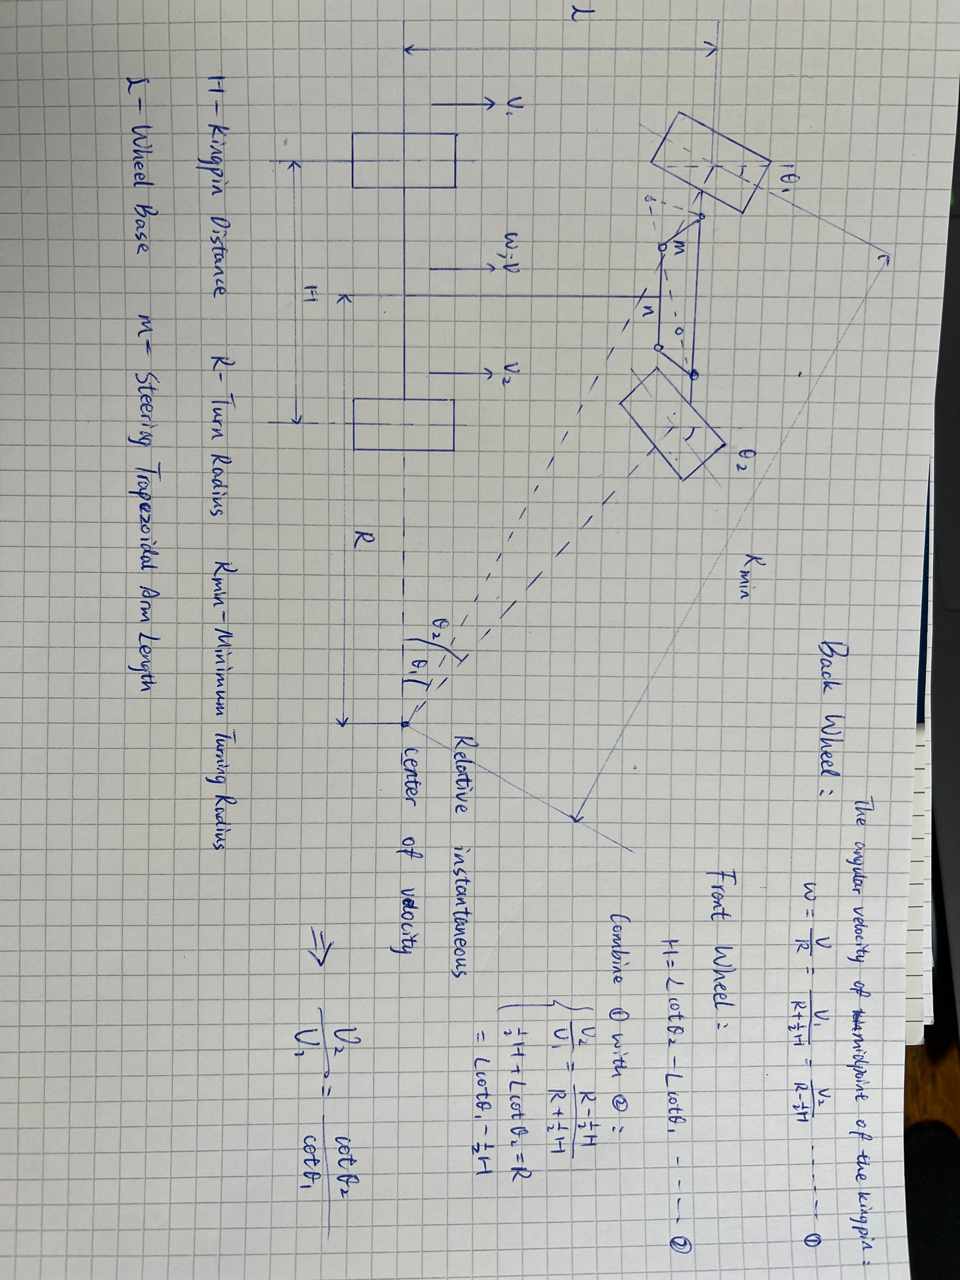 The angular velocity of midpoint of the kingpin:
Back Wheel:
W = V/R = V₁/(R+½H) = V₂/(R-½H) ------ ①
Front Wheel:
H = Lcotθ₂ - Lcotθ₁ ---- ②
Combine ① with ②:
V₂/V₁ = (R-½H)/(R+½H)
½H + Lcotθ₂ = R
= Lcotθ₁ - ½H
⇒ V₂/V₁ = cotθ₂/cotθ₁
θ₁
θ₂
Rmin
m
n
L
V₁
W,V
V₂
θ₂
θ₁
Relative instantaneous
center of velocity
R
H
H - Kingpin Distance R - Turn Radius Rmin - Minimum Turning Radius
L - Wheel Base m - Steering Trapezoidal Arm Length